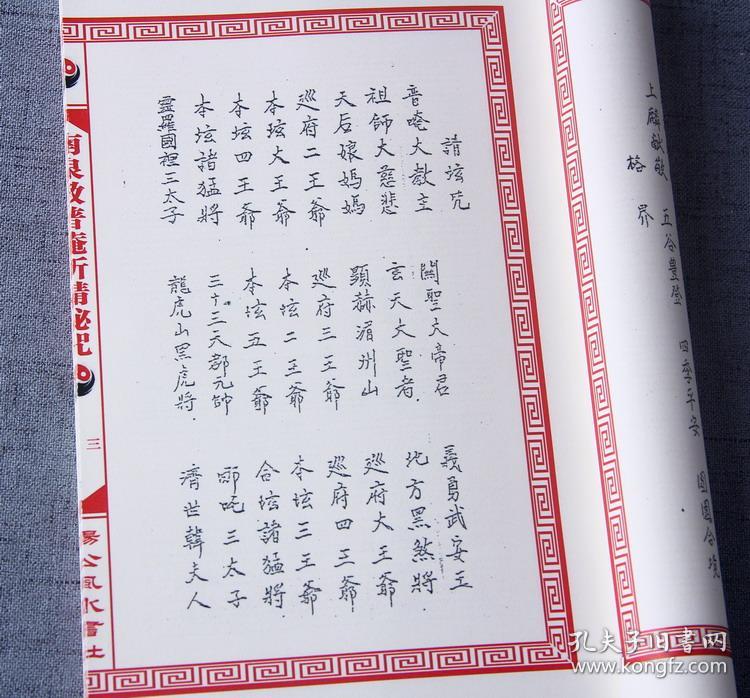 五谷豐登 四季平安
請坛咒
普唵大教主 關聖大帝君 義勇武安王
祖師大慈悲 玄天大聖者 地方黑煞將
天后娘媽媽 顯赫湄州山 巡府大王爺
巡府二王爺 巡府三王爺 巡府四王爺
本坛大王爺 本坛二王爺 本坛三王爺
本坛四王爺 本坛五王爺 合坛諸猛將
本坛諸猛將 三十三天都元帥 哪吒三太子
靈羅國裡三太子 龍虎山黑虎將 濟世韓夫人
南泉教普庵祈請秘咒
三
楊公風水書社
孔夫子旧书网
www.kongfz.com